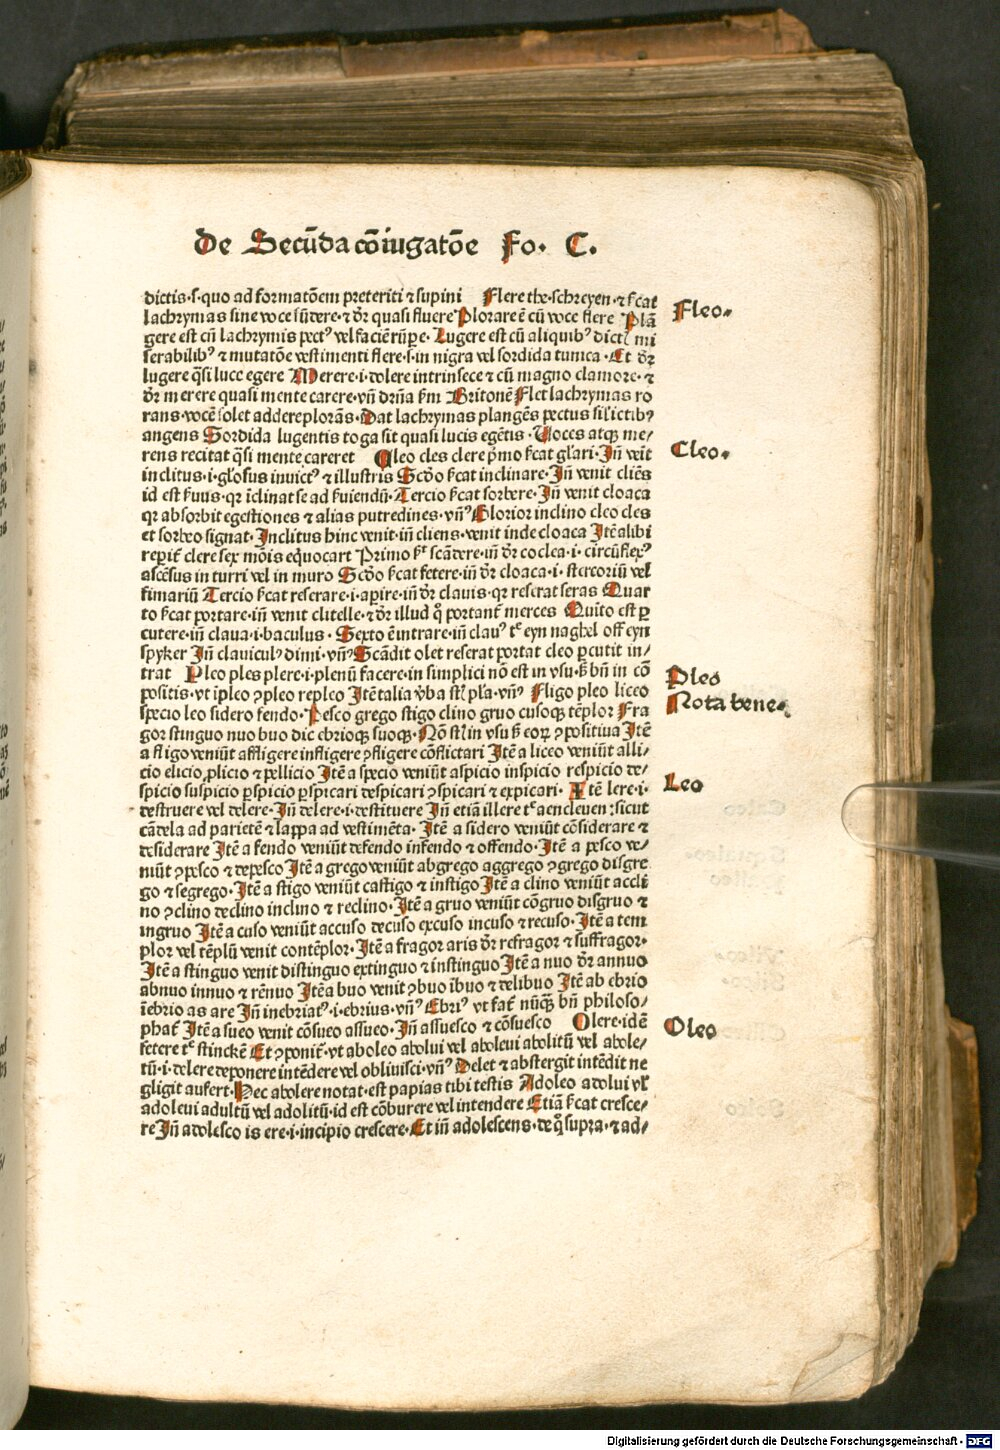 de Secūda cōiugatōe Fo. C.
dictis.s.quo ad formatōem preteriti ⁊ supini Flere the.schreyen.⁊ s̄cat
lachrymas sine voce fūdere.⁊ dr̄ quasi fluere Plorare ē cū voce flere Plā
gere est cū lachrymis pectꝰ vel faciē rūpe. Lugere est cū aliquibꝰ dictꝭ mi
serabilibꝰ ⁊ mutatōe vestimenti flere.s.in nigra vel sordida tunica.Et dr̄
lugere q̄si luce egere Merere.i.dolere intrinsece ⁊ cū magno clamore.⁊
dr̄ merere quasi mente carere.vn̄ dr̄na s̄m Britonē Flet lachrymas ro
rans.vocē solet addere plorās.Dat lachrymas plangēs pectus
angens Sordida lugentis toga sit quasi lucis egētis.Uoces atqꝫ me/
rens recitat q̄si mente careret Cleo cles clere p̄mo s̄cat gl'ari.Jn̄ veīt
inclitus.i.gl'osus invictꝰ ⁊ illustris Scd̄o s̄cat inclinare.Jn̄ venit cliēs
id est s̄uus.qꝛ īclinat se ad s̄uiendū.Tercio s̄cat sorbere.Jn̄ venit cloaca
qꝛ absorbit egestiones ⁊ alias putredines.vn̄ꝰ Glorior inclino cleo cles
et sorbeo signat.Jnclitus hinc venit.in̄ cliens.venit inde cloaca Jtē alibi
reperit̄ clere sex mōis eq̄uocart Primo s̄t scādere.in̄ dr̄ coclea.i.circūflexꝰ
ascēsus in turri vel in muro Scd̄o s̄cat fetere.in̄ dr̄ cloaca.i.stercoriū vel
fimariū Tercio s̄cat reserare.i.aperire.in̄ dr̄ clauis.qꝛ reserat seras Quar
to s̄cat portare.in̄ venit clitelle.⁊ dr̄ illud q̄ portant̄ merces Quito est ꝑ
cutere.in̄ claua.i.baculus.Sexto ē intrare.in̄ clauꝰ tᵉ eyn naghel off eyn
spyker Jn̄ claviculꝰ dimi.vn̄ꝰ Scādit olet reserat portat cleo ꝑcutit in/
trat Pleo ples plere.i.plenū facere.in simplici nō est in vsu.s̄ bn̄ in cō
positis.vt īpleo ꝯpleo repleo Jtē talia v̄ba st̄ pl'a.vn̄ꝰ Fligo pleo liceo
specio leo sidero fendo.Pesco grego stigo clino gruo cusoqꝫ tēplor Fra
gor stinguo nuo buo dic ebrioqꝫ suoqꝫ.Nō st̄ in vsu s̄ eoꝝ ꝯpositiua Jtē
a fligo veniūt affligere infligere ꝯfligere cōflictari Jtē a liceo veniūt alli/
cio elicio ꝓlicio ⁊ pellicio Jtē a specio veniūt aspicio inspicio respicio de/
spicio suspicio ꝑspicio ꝑspicari despicari ꝯspicari ⁊ expicari. Jtē lere.i.
destruere vel delere.Jn̄ delere.i.destituere Jn̄ etiā illere tᵉ aencleuen:sicut
cādela ad parietē ⁊ lappa ad vestimēta.Jtē a sidero veniūt cōsiderare ⁊
desiderare Jtē a fendo veniūt defendo infendo ⁊ offendo.Jtē a pesco ve/
niūt ꝯpesco ⁊ depesco Jtē a grego veniūt abgrego aggrego ꝯgrego disgre
go ⁊ segrego.Jtē a stigo veniūt castigo ⁊ instigo Jtē a clino veniūt accli
no ꝯclino declino inclino ⁊ reclino.Jtē a gruo veniūt cōgruo disgruo ⁊
ingruo Jtē a cuso veniūt accuso decuso excuso incuso ⁊ recuso.Jtē a tem
plor vel tēplū venit contēplor.Jtē a fragor aris dr̄ refragor ⁊ suffragor.
Jtē a stinguo venit distinguo extinguo ⁊ instinguo Jtē a nuo dr̄ annuo
abnuo innuo ⁊ rēnuo Jtē a buo venit ꝯbuo ībuo ⁊ delibuo Jtē ab ebrio
īebrio as are Jn̄ inebriatꝰ.i.ebrius.vn̄ꝰ Ebriꝰ vt fat̄ nūqꝫ bn̄ philoso/
phat̄ Jtē a sueo venit cōsueo assueo.Jn̄ assuesco ⁊ cōsuesco Olere.idē
fetere tᵉ stinckē Et ꝯponit̄.vt aboleo abolui vel abolevi abolitū vel abole/
tū.i.delere deponere intēdere vel oblivisci.vn̄ꝰ Delet ⁊ abstergit intēdit ne
gligit aufert.Hec abolere notat.est papias tibi testis Adoleo adolui vl'
adolevi adultū vel adolitū.id est cōburere vel intendere Etiā s̄cat cresce/
re Jn̄ adolesco is ere.i.incipio crescere.Et in̄ adolescens.de q̄ supra.⁊ ad/
Fleo.
Cleo.
Pleo
Nota bene.
Leo
Oleo
Digitalisierung gefördert durch die Deutsche Forschungsgemeinschaft - DFG